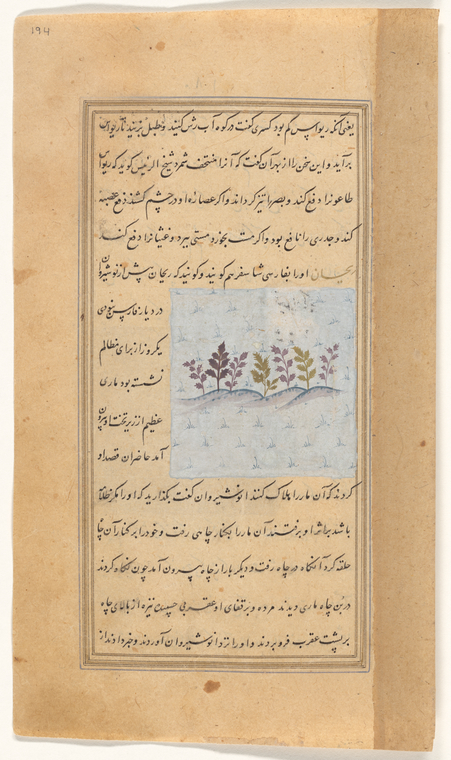 ۱۹۴
یعنی آنکه ریواس کم بود کسری گفت در کوه آب رش کنید و طبل بزنید تا ریواس
برآید و این سخن را از بهر آن گفت که آنرا مستحف شمرد شیخ الرئیس کوید که ریواس
طاعونرا دفع کند و بصر را تیز کرداند و اکر عصاره او در چشم کشند دفع
کند و جدری را نافع بود و اکر مست بخورد مستی ببرد و غثیانرا دفع کند
ریحان اورا بفارسی شاسفرهم کویند و کویند که ریحان پیش از نوشیروان
در دیار فارس نبودی
یکروز از برای مظالم
نشسته بود ماری
عظیم از زیر تخت او بیرون
آمد حاضران قصد او
کردند که آن مار را هلاک کنند انوشیروان کفت بکذارید که او را مکر ظلامتی
باشد براثر او برفتند آن مار را بکنار چاهی رفت و خود را بر کنار آن چاه
حلقه کرد آنکاه در چاه رفت و دیکر بار از چاه بیرون آمد چون نکاه کردند
در بن چاه ماری دیدند مرده و بر قفای او عقربی نیزه از بالای چاه
بر پشت عقرب فرو بردند و او را نزد انوشیروان آوردند و خبر دادند از